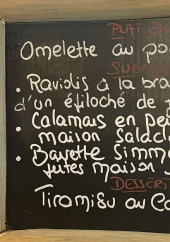 PLAT
Omelette au po
SUGG
• Raviolis à la bra
d'un éfiloché de
• Calamars en pe
maison salade
• Bavette Simme
faites maison
DESSERT
Tiramisu au Ca